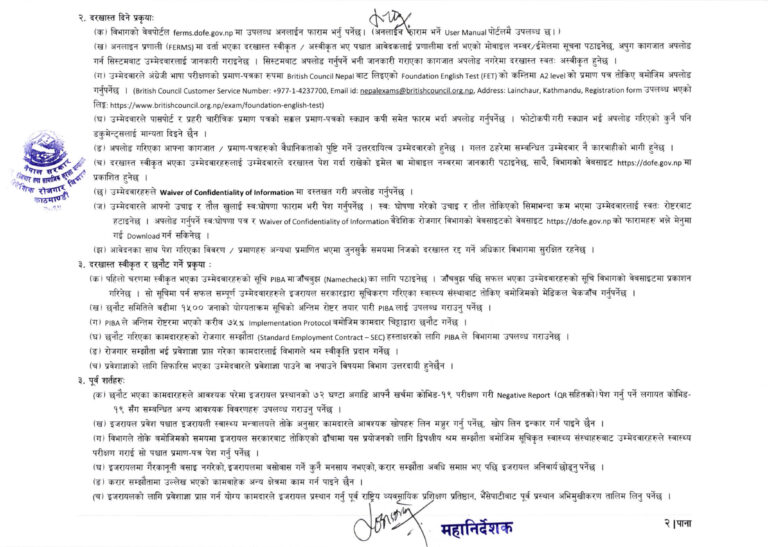 २. दरखास्त दिने प्रकृयाः
(क) विभागको वेवपोर्टल ferms.dofe.gov.np मा उपलब्ध अनलाईन फाराम भर्नु पर्नेछ। (अनलाईन फाराम भर्ने User Manual पोर्टलमै उपलब्ध छ।)
(ख) अनलाइन प्रणाली (FERMS) मा दर्ता भएका दरखास्त स्वीकृत / अस्वीकृत भए पश्चात आवेदकलाई प्रणालीमा दर्ता भएको मोबाइल नम्बर/ईमेलमा सूचना पठाइनेछ, अपुग कागजात अपलोड
गर्न सिस्टमबाट उम्मेदवारलाई जानकारी गराइनेछ । सिस्टमबाट अपलोड गर्नुपर्ने भनी जानकारी गराएका कागजात अपलोड नगरेमा दरखास्त स्वतः अस्वीकृत हुनेछ ।
(ग) उम्मेदवारले अंग्रेजी भाषा परीक्षणको प्रमाण-पत्रका रुपमा British Council Nepal बाट लिइएको Foundation English Test (FET) को कम्तिमा A2 level को प्रमाण पत्र तोकिए बमोजिम अपलोड
गर्नुपर्नेछ । (British Council Customer Service Number: +977-1-4237700, Email id: nepalexams@britishcouncil.org.np, Address: Lainchaur, Kathmandu, Registration form उपलब्ध भएको
लिङ्क: https://www.britishcouncil.org.np/exam/foundation-english-test)
(घ) उम्मेदवारले पासपोर्ट र प्रहरी चारीत्रिक प्रमाण पत्रको सक्कल प्रमाण-पत्रको स्क्यान कपी समेत फारम भर्दा अपलोड गर्नुपर्नेछ । फोटोकपी गरी स्क्यान भई अपलोड गरिएको कुनै पनि
डकुमेन्ट्सलाई मान्यता दिइने छैन ।
(ङ) अपलोड गरिएका आफ्ना कागजात / प्रमाण-पत्रहरुको वैधानिकताको पुष्टि गर्ने उत्तरदायित्व उम्मेदवारको हुनेछ । गलत ठहरेमा सम्बन्धित उम्मेदवार नै कारवाहीको भागी हुनेछ ।
(च) दरखास्त स्वीकृत भएका उम्मेदवारहरुलाई उम्मेदवारले दरखास्त पेश गर्दा राखेको इमेल वा मोबाइल नम्बरमा जानकारी पठाइनेछ, साथै, विभागको वेबसाइट https://dofe.gov.np मा
प्रकाशित हुनेछ ।
(छ) उम्मेदवारहरुले Waiver of Confidentiality of Information मा दस्तखत गरी अपलोड गर्नुपर्नेछ ।
(ज) उम्मेदवारले आफ्नो उचाइ र तौल खुलाई स्वःघोषणा फाराम भरी पेश गर्नुपर्ने छ । स्वः घोषणा गरेको उचाइ र तौल तोकिएको सिमाभन्दा कम भएमा उम्मेदवारलाई स्वतः रोष्टरबाट
हटाइनेछ । अपलोड गर्नुपर्ने स्वःघोषणा पत्र र Waiver of Confidentiality of Information बैदेशिक रोजगार विभागको वेबसाइटको वेबसाइट https://dofe.gov.np को फारामहरु भन्ने मेनुमा
गई Download गर्न सकिनेछ ।
(झ) आवेदनका साथ पेश गरिएका विवरण / प्रमाणहरु अन्यथा प्रमाणित भएमा जुनसुकै समयमा निजको दरखास्त रद्द गर्ने अधिकार विभागमा सुरक्षित रहनेछ ।
३. दरखास्त स्वीकृत र छनौट गर्ने प्रकृया :
(क) पहिलो चरणमा स्वीकृत भएका उम्मेदवारहरुको सूचि PIBA मा जाँचबुझ (Namecheck) का लागि पठाइनेछ । जाँचबुझ पछि सफल भएका उम्मेदवारहरुको सूचि विभागको वेबसाइटमा प्रकाशन
गरिनेछ । सो सूचिमा पर्न सफल सम्पूर्ण उम्मेदवारहरुले इजरायल सरकारद्वारा सूचिकरण गरिएका स्वास्थ्य संस्थाबाट तोकिए बमोजिमको मेडिकल चेकजाँच गर्नुपर्नेछ ।
(ख) छनौट समितिले बढीमा १५०० जनाको योग्यताक्रम सूचिको अन्तिम रोष्टर तयार पारी PIBA लाई उपलब्ध गराउनु पर्नेछ ।
(ग) PIBA ले अन्तिम रोष्टरमा भएको करीव ७५% Implementation Protocol बमोजिम कामदार चिठ्ठाद्वारा छनौट गर्नेछ ।
(घ) छनौट गरिएका कामदारहरुको रोजगार सम्झौता (Standard Employment Contract – SEC) हस्ताक्षरको लागि PIBA ले विभागमा उपलब्ध गराउनेछ ।
(ङ) रोजगार सम्झौता भई प्रवेशाज्ञा प्राप्त गरेका कामदारलाई विभागले श्रम स्वीकृति प्रदान गर्नेछ ।
(च) प्रवेशाज्ञाको लागि सिफारिस भएका उम्मेदवारले प्रवेशाज्ञा पाउने वा नपाउने विषयमा विभाग उत्तरदायी हुनेछैन ।
३. पूर्व शर्तहरुः
(क) छनौट भएका कामदारहरुले आवश्यक परेमा इजरायल प्रस्थानको ७२ घण्टा अगाडि आफ्नै खर्चमा कोभिड-१९ परीक्षण गरी Negative Report (QR सहितको) पेश गर्नु पर्ने लगायत कोभिड-
१९ सँग सम्बन्धित अन्य आवश्यक विवरणहरु उपलब्ध गराउनु पर्नेछ ।
(ख) इजरायल प्रवेश पश्चात इजरायली स्वास्थ्य मन्त्रालयले तोके अनुसार कामदारले आवश्यक खोपहरु लिन मञ्जुर गर्नु पर्नेछ, खोप लिन इन्कार गर्न पाइने छैन ।
(ग) विभागले तोके बमोजिमको समयमा इजरायल सरकारबाट तोकिएको ढाँचामा यस प्रयोजनको लागि द्विपक्षीय श्रम सम्झौता बमोजिम सूचिकृत स्वास्थ्य संस्थाहरुबाट उम्मेदवारहरुले स्वास्थ्य
परीक्षण गराई सो पश्चात प्रमाण-पत्र पेश गर्नु पर्नेछ ।
(घ) इजरायलमा गैरकानूनी बसाइ नगरेको, इजरायलमा बसोवास गर्ने कुनै मनसाय नभएको, करार सम्झौता अवधि समाप्त भए पछि इजरायल अनिवार्य छोड्नु पर्नेछ ।
(ङ) करार सम्झौतामा उल्लेख भएको कामबाहेक अन्य क्षेत्रमा काम गर्न पाइने छैन ।
(च) इजरायलको लागि प्रवेशाज्ञा प्राप्त गर्न योग्य कामदारले इजरायल प्रस्थान गर्नु पूर्व राष्ट्रिय व्यवसायिक प्रशिक्षण प्रतिष्ठान, भैंसेपाटीबाट पूर्व प्रस्थान अभिमुखीकरण तालिम लिनु पर्नेछ ।
महानिर्देशक
२|पाना
नेपाल सरकार
काठमाण्डौ